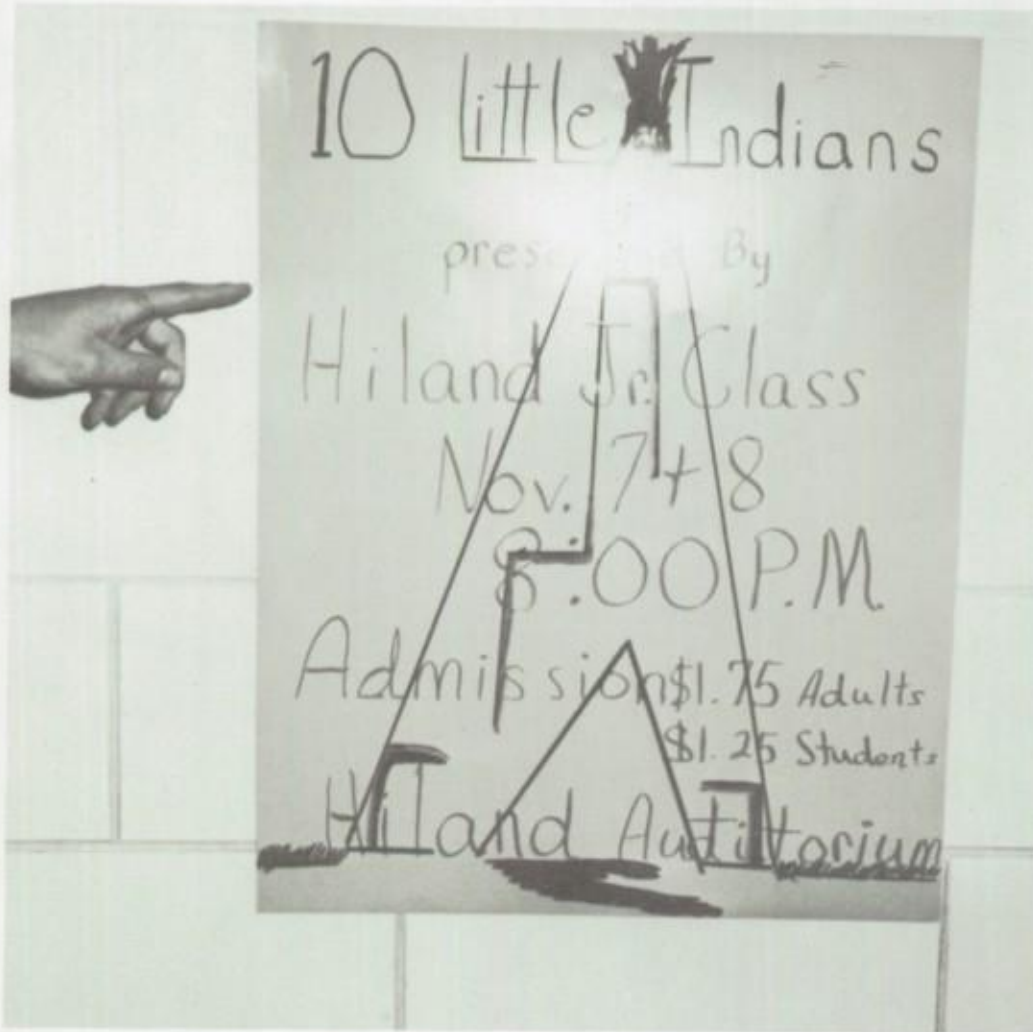 10 Little Indians
By
Hiland Jr. Class
Nov. 7 + 8
8:00 P.M.
Admission $1.75 Adults
$1.25 Students
Hiland Audittorium